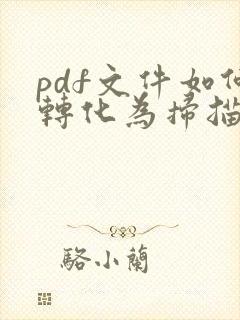 pdf文件如何
轉化為掃描
駱小蘭